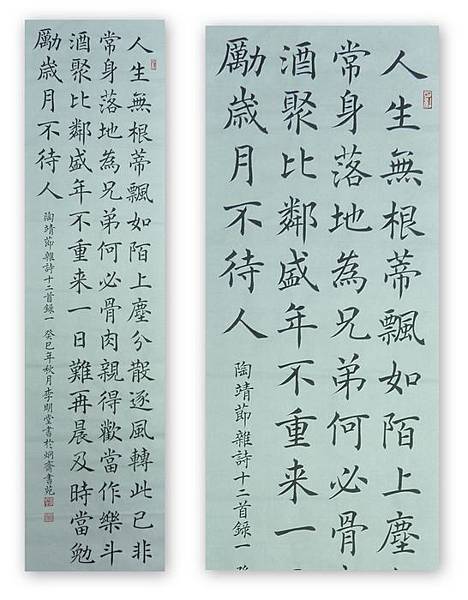 人生無根蒂飄如陌上塵分散逐風轉此已非
常身落地為兄弟何必骨肉親得歡當作樂斗
酒聚比鄰盛年不重来一日難再晨及時當勉
勵歲月不待人
陶靖節雜詩十二首録一 癸巳年秋月李明堂書於齋書苑
人生無根蒂飄如陌上塵
常身落地為兄弟何必骨
酒聚比鄰盛年不重来一
勵歲月不待人
陶靖節雜詩十二首録一